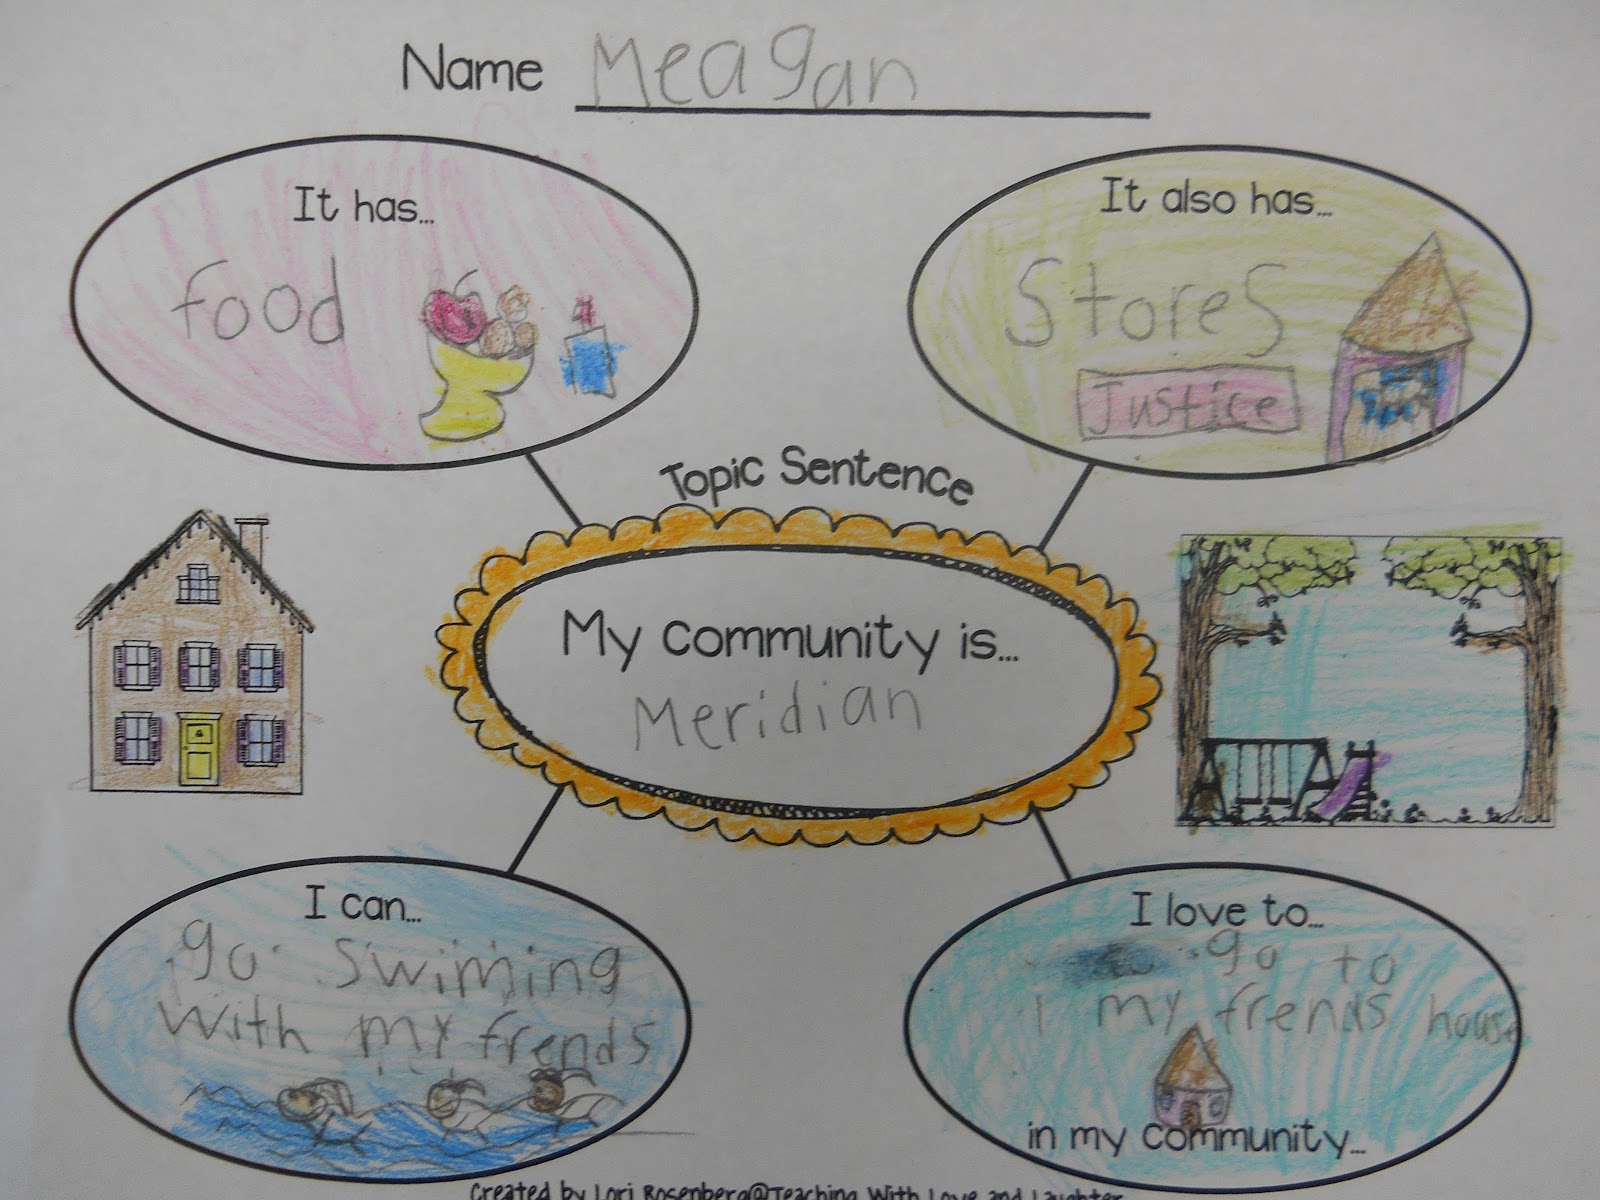 Name Meagan
It has...
food
It also has...
Stores
Justice
Topic Sentence
My community is...
Meridian
I can...
go swiming
with my frends
I love to...
go to
my frends house
in my community...
Created by Lori Rosenberg@Teaching With Love and Laughter